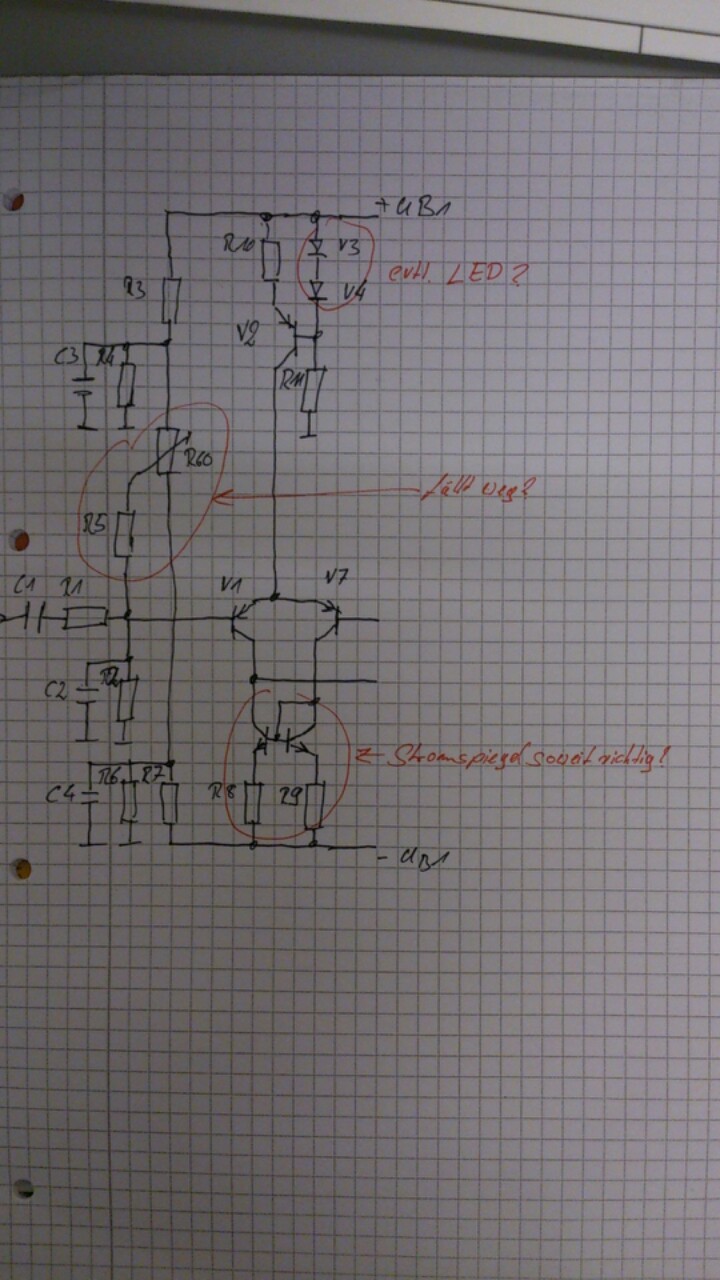 + UB1
R10
V3
evtl. LED?
V4
R3
V2
C3
R4
R11
R60
fällt weg?
R5
C1
R1
V1
V7
C2
R2
Stromspiegel soweit richtig?
C4
R6
R7
R8
R9
- UB1